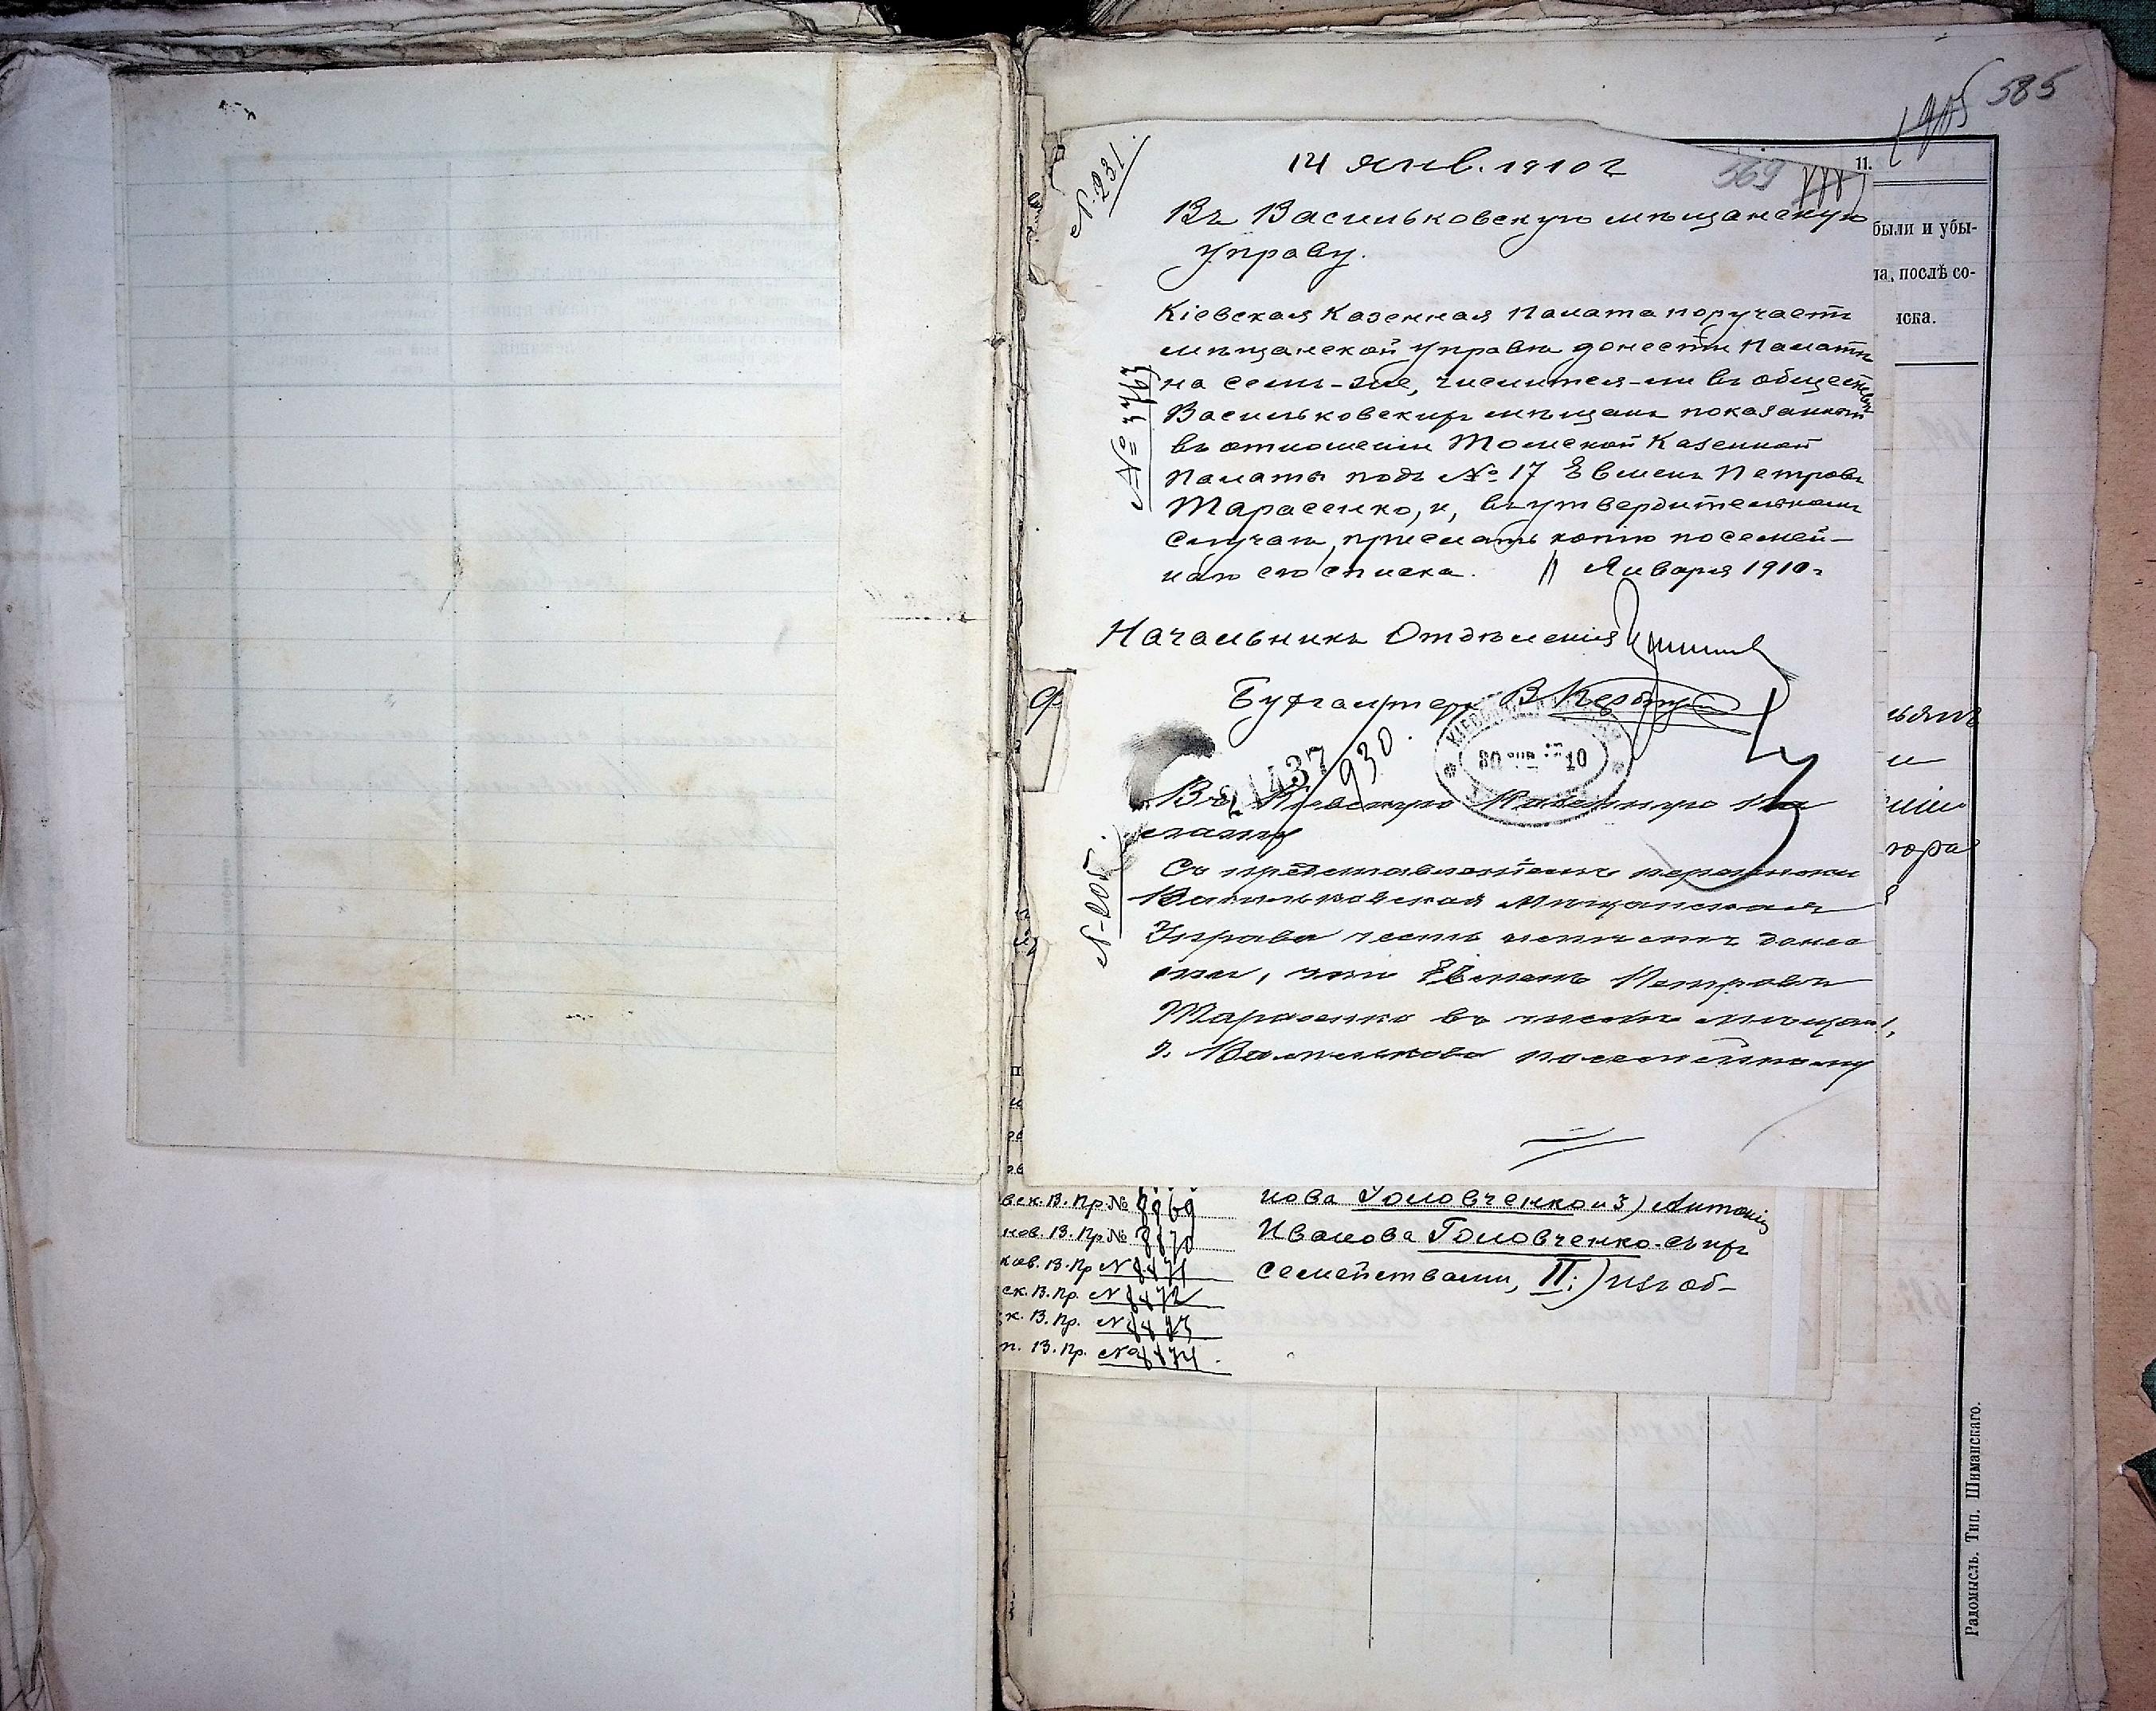 585
14 янв. 1910 г
569
11.
N. 231.
Въ Васильковскую мѣщанскую
управу.
были и убы-
ла, послѣ со-
иска.
Кіевская Казенная Палата поручаетъ
мѣщанской управѣ донести Палатѣ
на семъ-же, числится-ли въ обществѣ
Васильковскихъ мѣщанъ показанный
въ отношеніи Томской Казенной
Палаты подъ № 17 Евменъ Петровъ
Тарасенко, и, въ утвердительномъ
случаѣ, прислать копію посемей-
наго его списка. 11 Января 1910 г
Начальникъ Отдѣленія
Бухгалтеръ
1437
930.
10
Въ Кіевскую Казенную Па
лату
N-205.
Съ представленіемъ переписки
Васильковская Мѣщанская
Управа честь имѣетъ донес
ти, что Евменъ Петровъ
Тарасенко въ числѣ мѣщанъ
г. Василькова посемейному
вск. В. Пр № 8869
нов. В. Пр № 8870
ков. В. Пр N 8871
ск. В. Пр. N 8872
к. В. Пр. N 8873
п. В. Пр. № 8874.
нова Головченко и 3) Антонія
Иванова Головченко съ ихъ
семействами, II:) изъ об-
Радомысль. Тип. Шиманскаго.